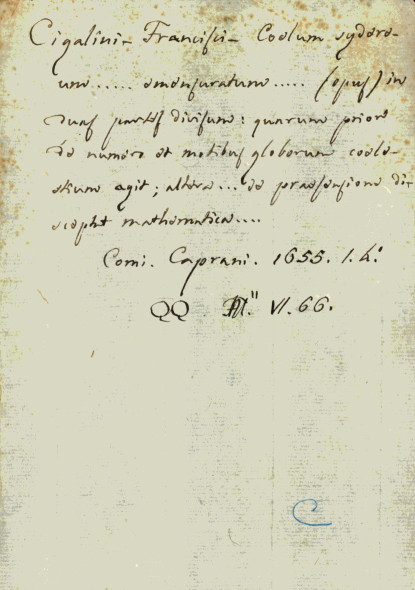 Cigalini - Francisci - Coelum sydere-
um ..... emensuratum ..... (opus) in
duas partes divisum: quarum priore
de numero et motibus globorum coele-
stium agit; altera ... de praesensione dis-
ceptat mathematica ....
Comi. Caprani. 1655. 1. 4.º
QQ VI. 66.
C